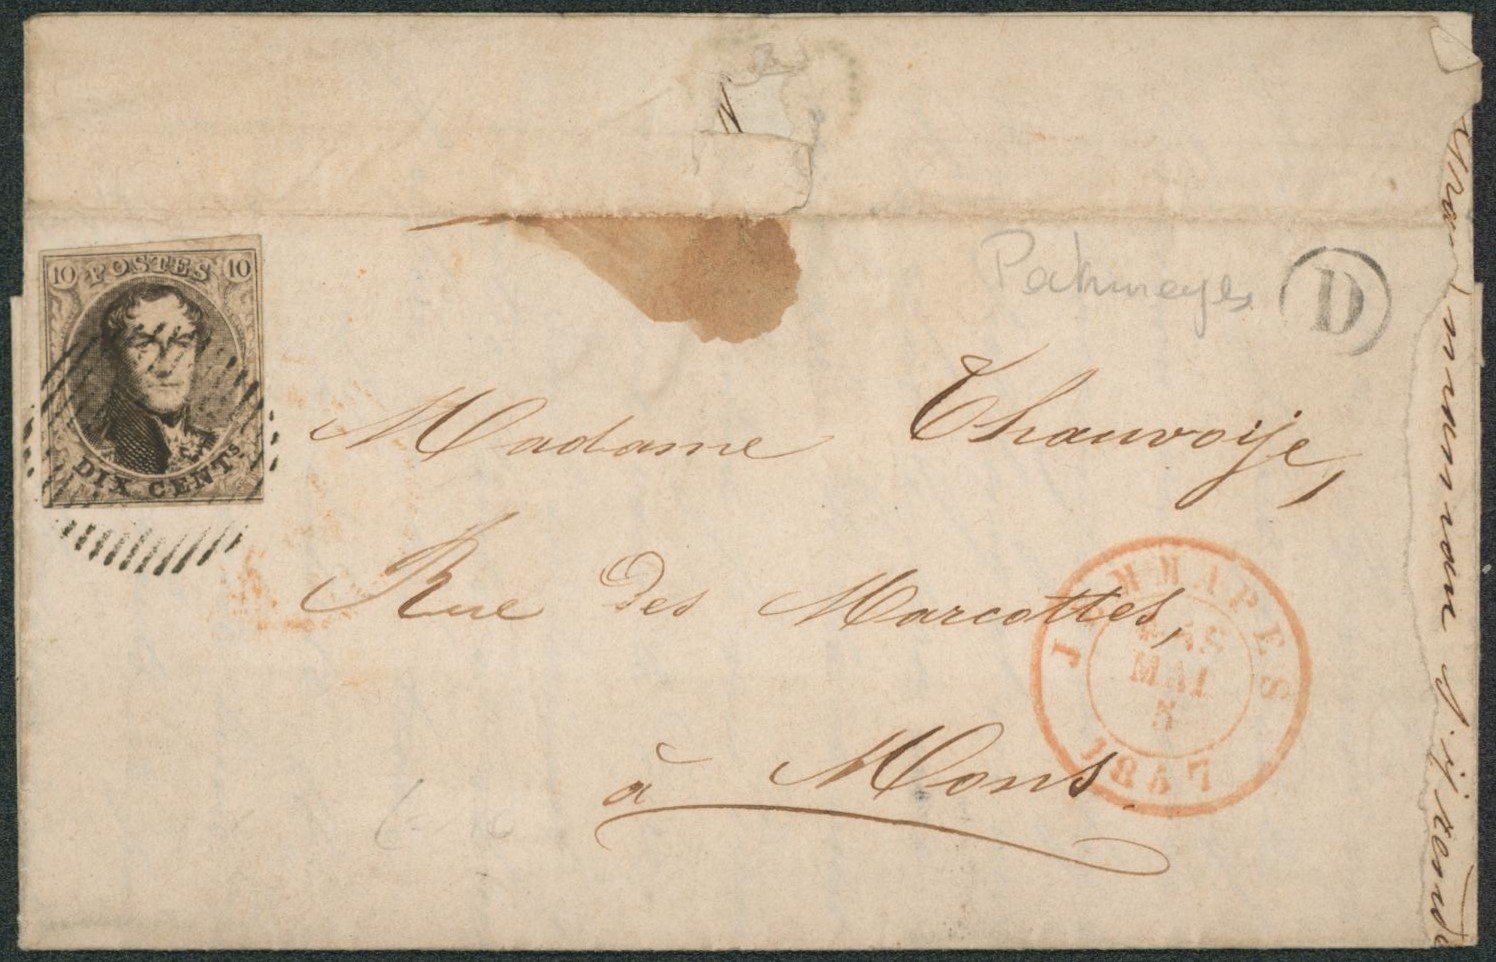 10 POSTES 10
DIX CENTS
Paturages
D
Madame Thauvoije,
Rue des Marcottes,
à Mons
JEMMAPES
MAI
5
1857